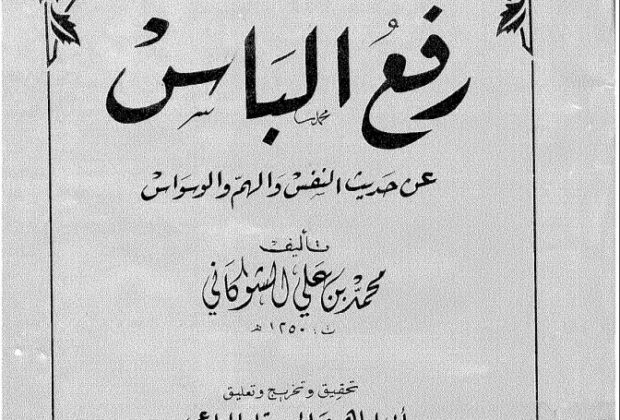 رفع الباس
عن حديث النفس والهم والوسواس
تأليف
محمد بن علي الشوكاني
ت، ١٢٥٠ هـ
تحقيق وتخريج وتعليق